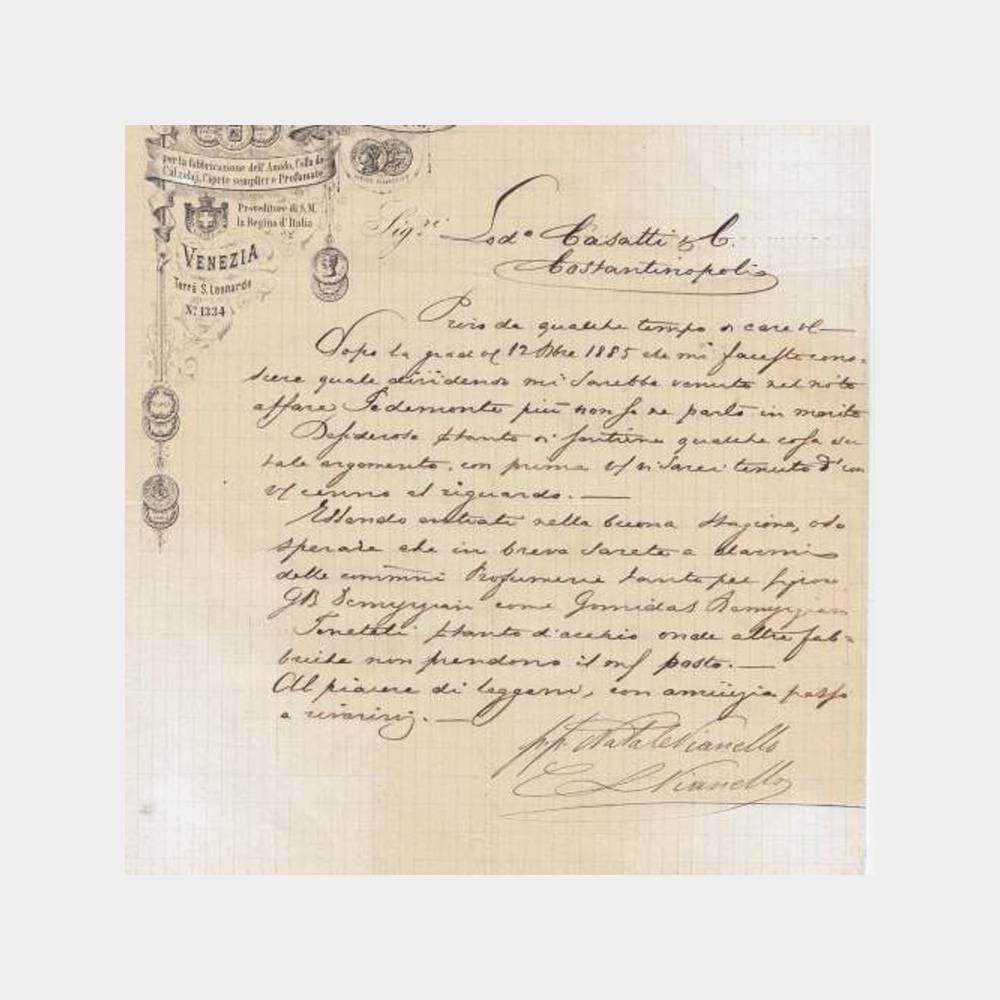 per la fabbricazione dell'Amido, Colla da
Calzolaj, Ciprie semplici e Profumate
Proveditore di S.M.
la Regina d'Italia
VENEZIA
Terrà S. Leonardo
Nº 1334
Sigri
Lodo Casatti & C.
Costantinopoli
Privo da qualche tempo di care
Dopo la grad 12 Xbre 1885 che mi faceste cono=
scere quale dividendo mi sarebbe venuto nel noto
affare Pedemonte più non se ne parlò in merito
Desideroso pertanto di sentirne qualche cosa su
tale argomento, con prima vi sarei tenuto d'un
cenno al riguardo.
Essendo entrati nella buona stagione, oso
sperare che in breve sarete a darmi
delle commni Profumerie tanto pei signori
GB come Gomidas
Teneteli d'occhio onde altre fab=
briche non prendono il posto.
Al piacere di leggervi, con amicizia passo
a riverirvi.
pp. Natale Vianello
Vianello